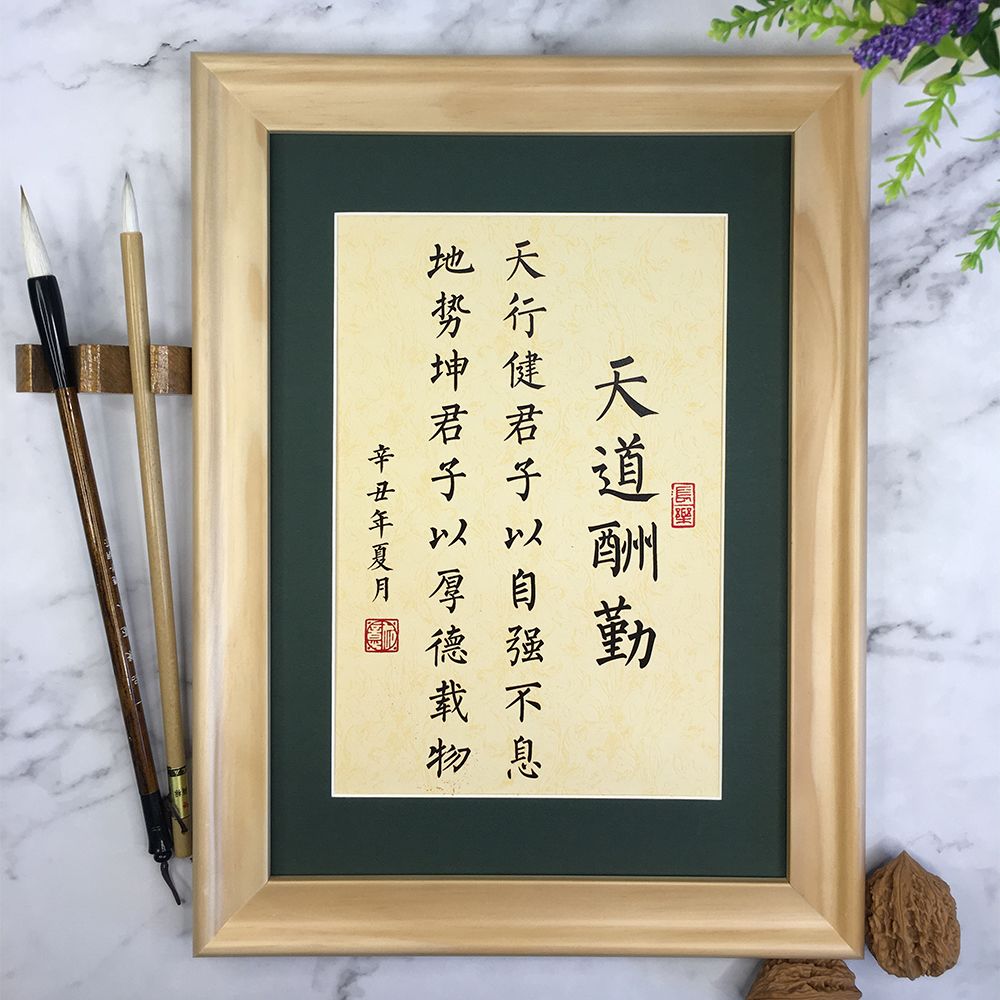 天道酬勤
天行健君子以自强不息
地势坤君子以厚德载物
辛丑年夏月
長樂